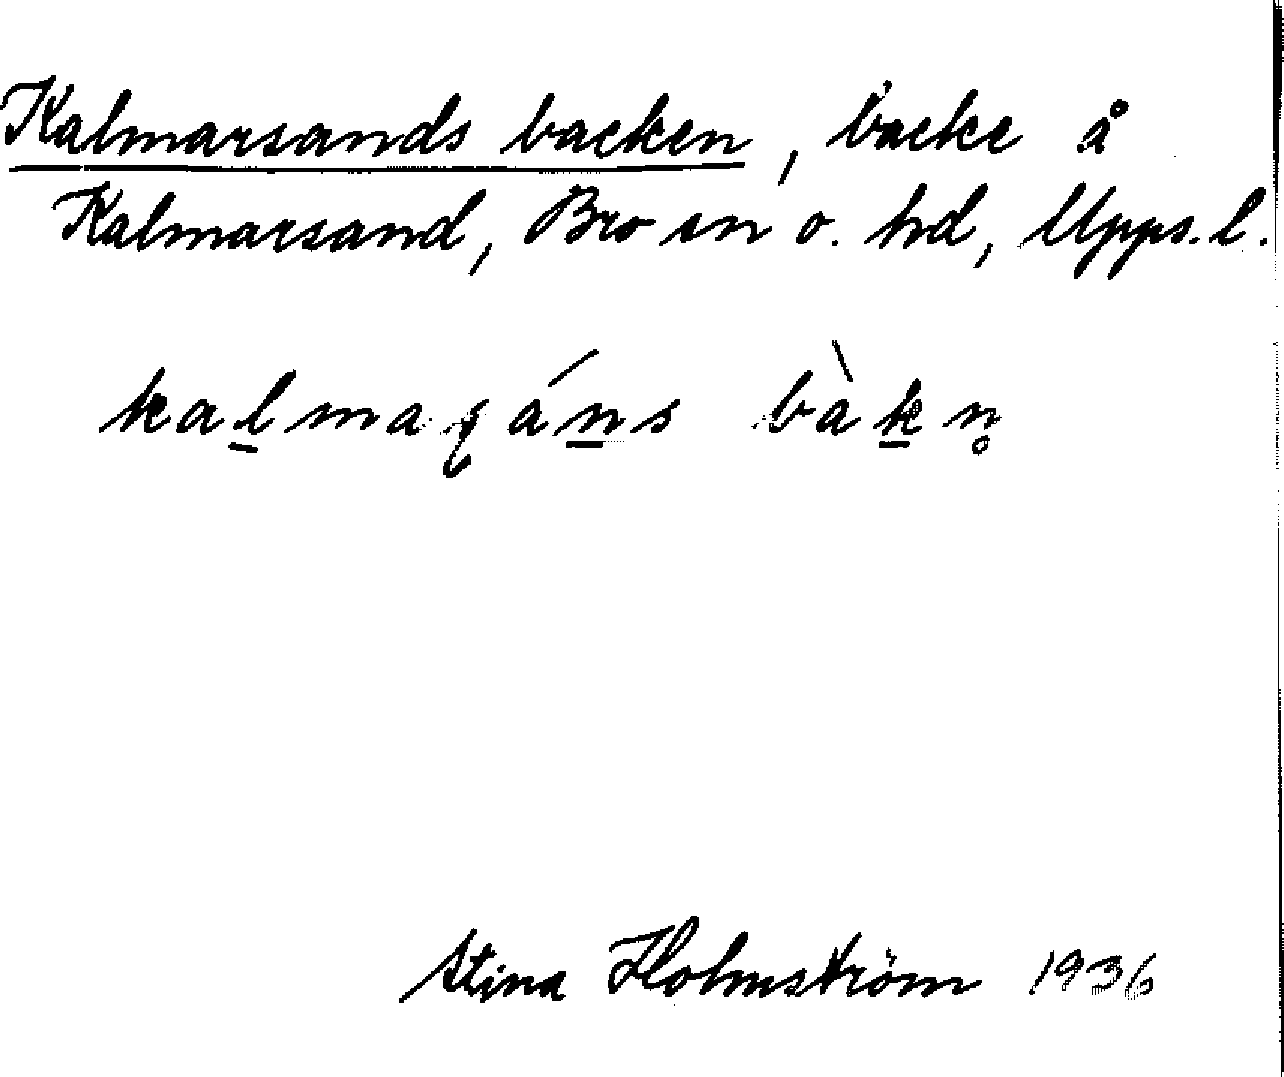 Kalmarsands backen, backe å
Kalmarsand, Bro sn o. hd, Upps. l.
kal̲maʂán̲s bàk̲n̥
Stina Holmström 1936